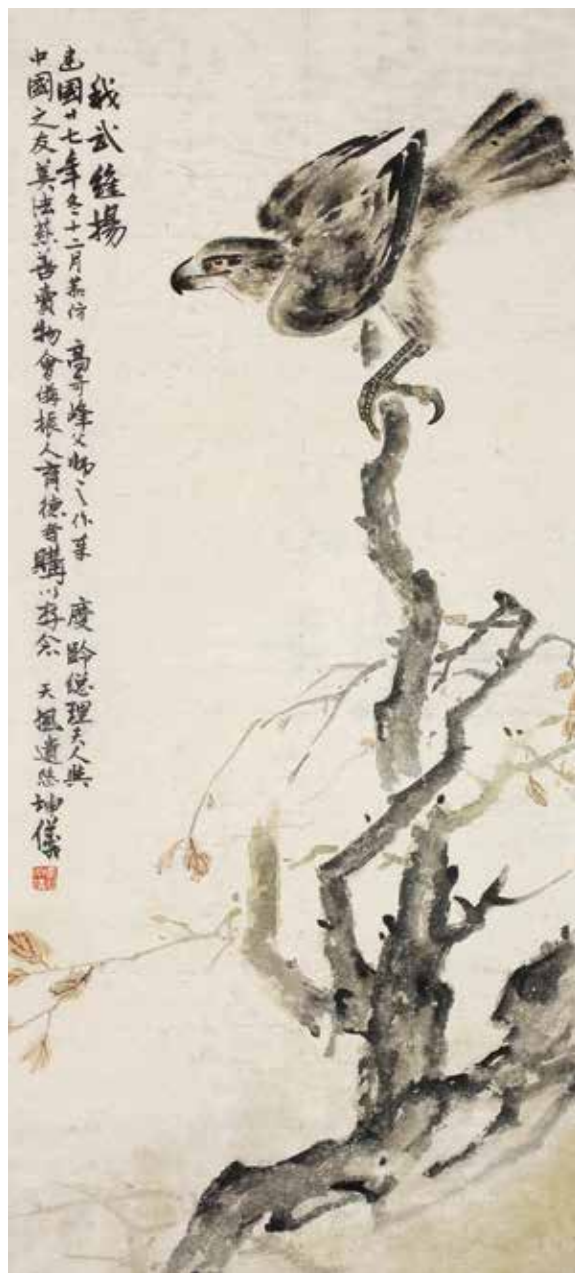 我武維揚
建國廿七年冬十二月恭仿 高奇峰父師之作業 慶齡總理夫人與
中國之友英法慈善賣物會俾振人育德者購以存念 天風遺慈坤儀